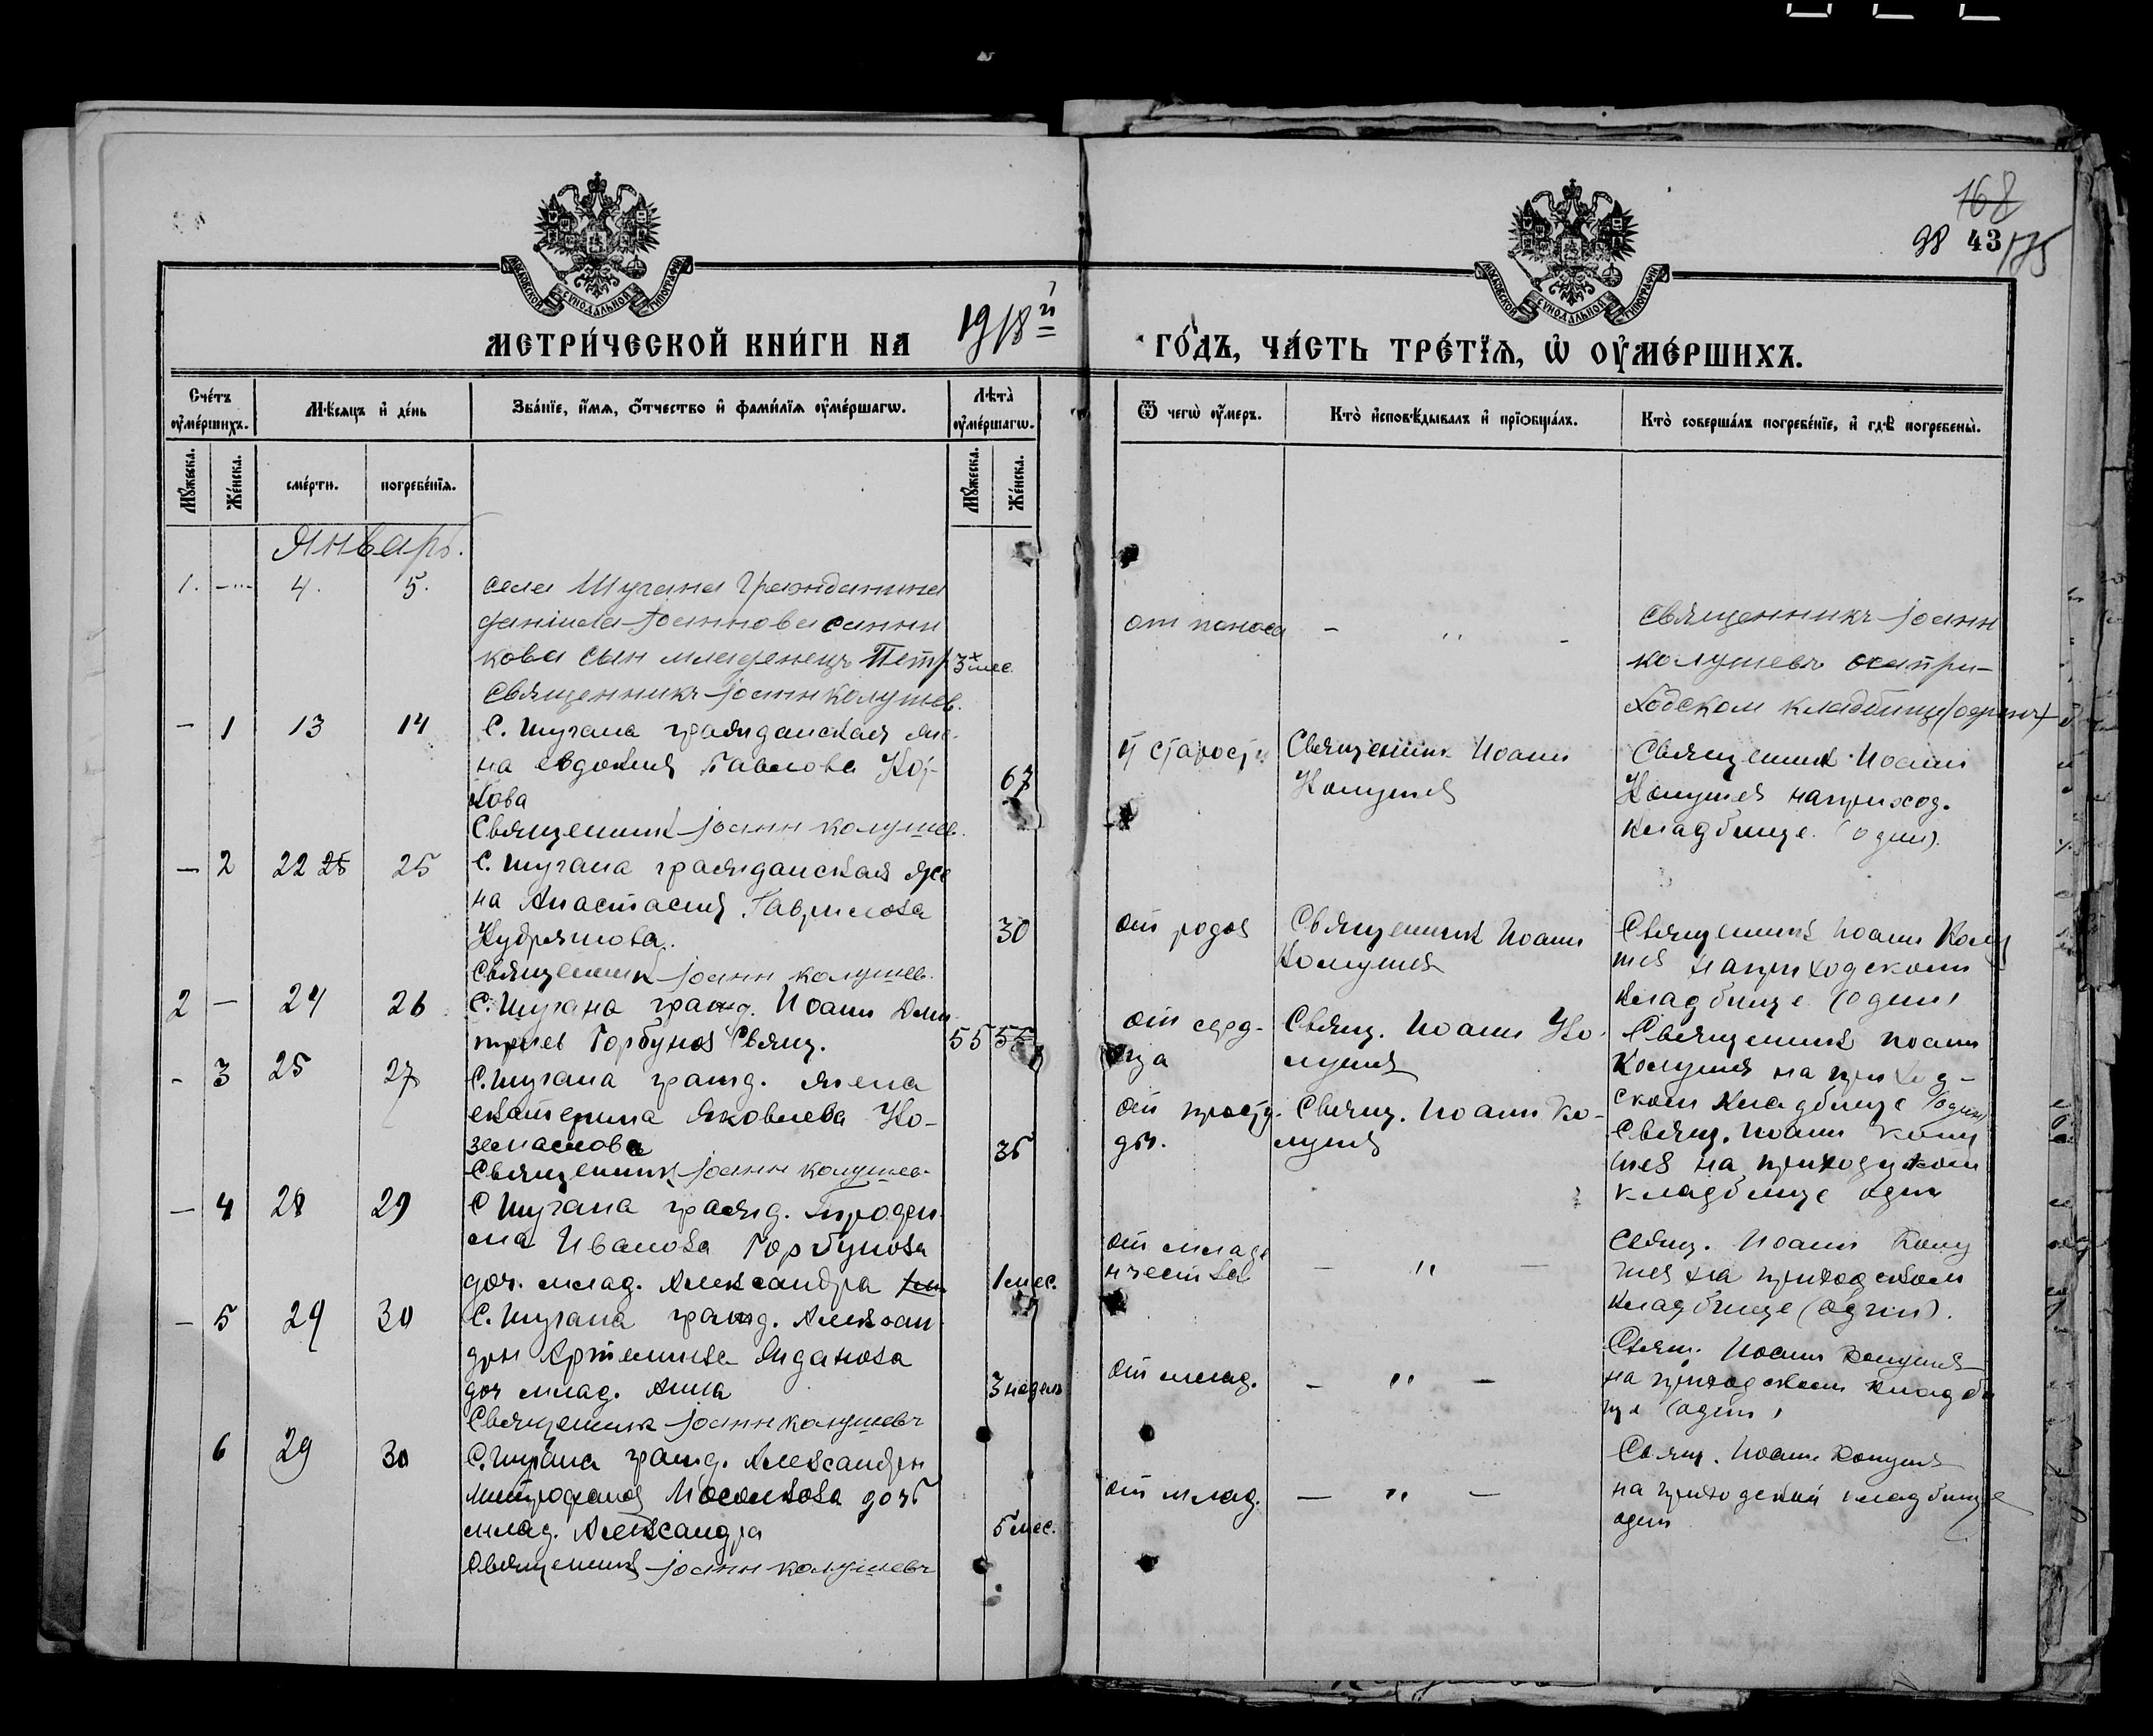 168
98 43/175
МОСКОВСКОЙ СѴНОДАЛЬНОЙ ТИПОГРАФІИ
МОСКОВСКОЙ СѴНОДАЛЬНОЙ ТИПОГРАФІИ
МЕТРИ́ЧЕСКОЙ КНИ́ГИ НА 1918й ГО́ДЪ, ЧА́СТЬ ТРЕ́ТЇѦ, Ѡ҆ ОУ҆МЕ́РШИХЪ.
Сче́тъ оу҆ме́ршихъ.
Мѣ́сѧцъ и҆ де́нь
Зва́нїе, и҆́мѧ, ѻ҆́тчество и҆ фами́лїѧ оу҆ме́ршагѡ.
Лѣ́та̀ оу҆ме́ршагѡ.
Ѿ чегѡ̀ оу҆́меръ.
Кто̀ и҆сповѣ́дывалъ и҆ прїѻбща́лъ.
Кто̀ соверша́лъ погребе́нїе, и҆ гдѣ̀ погребены̀.
Мꙋ́жеска.
Же́нска.
сме́рти.
погребе́нїѧ.
Мꙋ́жеска.
Же́нска.
Январь.
1. — 4. 5. села Шугана гражданина
Даніила Іоаннова Санни
кова сын младенецъ Петр 3х мес.
священникъ Іоанн Колушев.
от поноса
— " —
священникъ Іоанн
Колушевъ на при-
ходском кладбище (один)
— 1 13 14 С. Шугана гражданская же
на Евдокия Павлова
кова 67
Священник Іоанн Колушев.
от старости
Священник Иоанн
Колушев
Священник Иоанн
Колушев на приход.
кладбище. (один).
— 2 22 25 25 С. Шугана гражданская же
на Анастасия Гаврилова
Кудряшова. 30
Священник Іоанн Колушев.
от родов
Священник Иоанн
Колушев
Священник Иоанн Колу
шев на приходском
кладбище (один)
2 — 24 26 С. Шугана гражд. Иоанн Дми
триев Горбунов Свящ. 55 55
от серд-
ца
Свящ. Иоанн Ко-
лушев
Священник Иоанн
Колушев на приход-
ском кладбище (один)
- 3 25 27 С. Шугана гражд. жена
Екатерина Яковлева Ко-
земаслова 36
Священник Іоанн Колушев.
от просту-
ды.
Свящ. Иоанн Ко-
лушев
Свящ. Иоанн Колу
шев на приходском
кладбище один
— 4 28 29 С Шугана гражд.
Иванова Горбунова
доч. млад. Александра 1 мес.
от младе
нчества
— " —
Свящ. Иоанн Колу
шев на приходском
кладбище (один).
— 5 29 30 С. Шугана гражд. Алексан
дры Артемьева Жданова
доч млад. Анна 3 недели
Священник Іоанн Колушевъ
от млад.
— " —
Свящ. Иоанн Колушев
на приходском кладби
ще (один)
6 29 30 С. Шугана гражд. Александры
Митрофанов Мосолкова дочь
млад. Александра 5 мес.
Священник Іоанн Колушевъ
от млад.
— " —
Свящ. Иоанн Колушев
на приходском кладбище
один